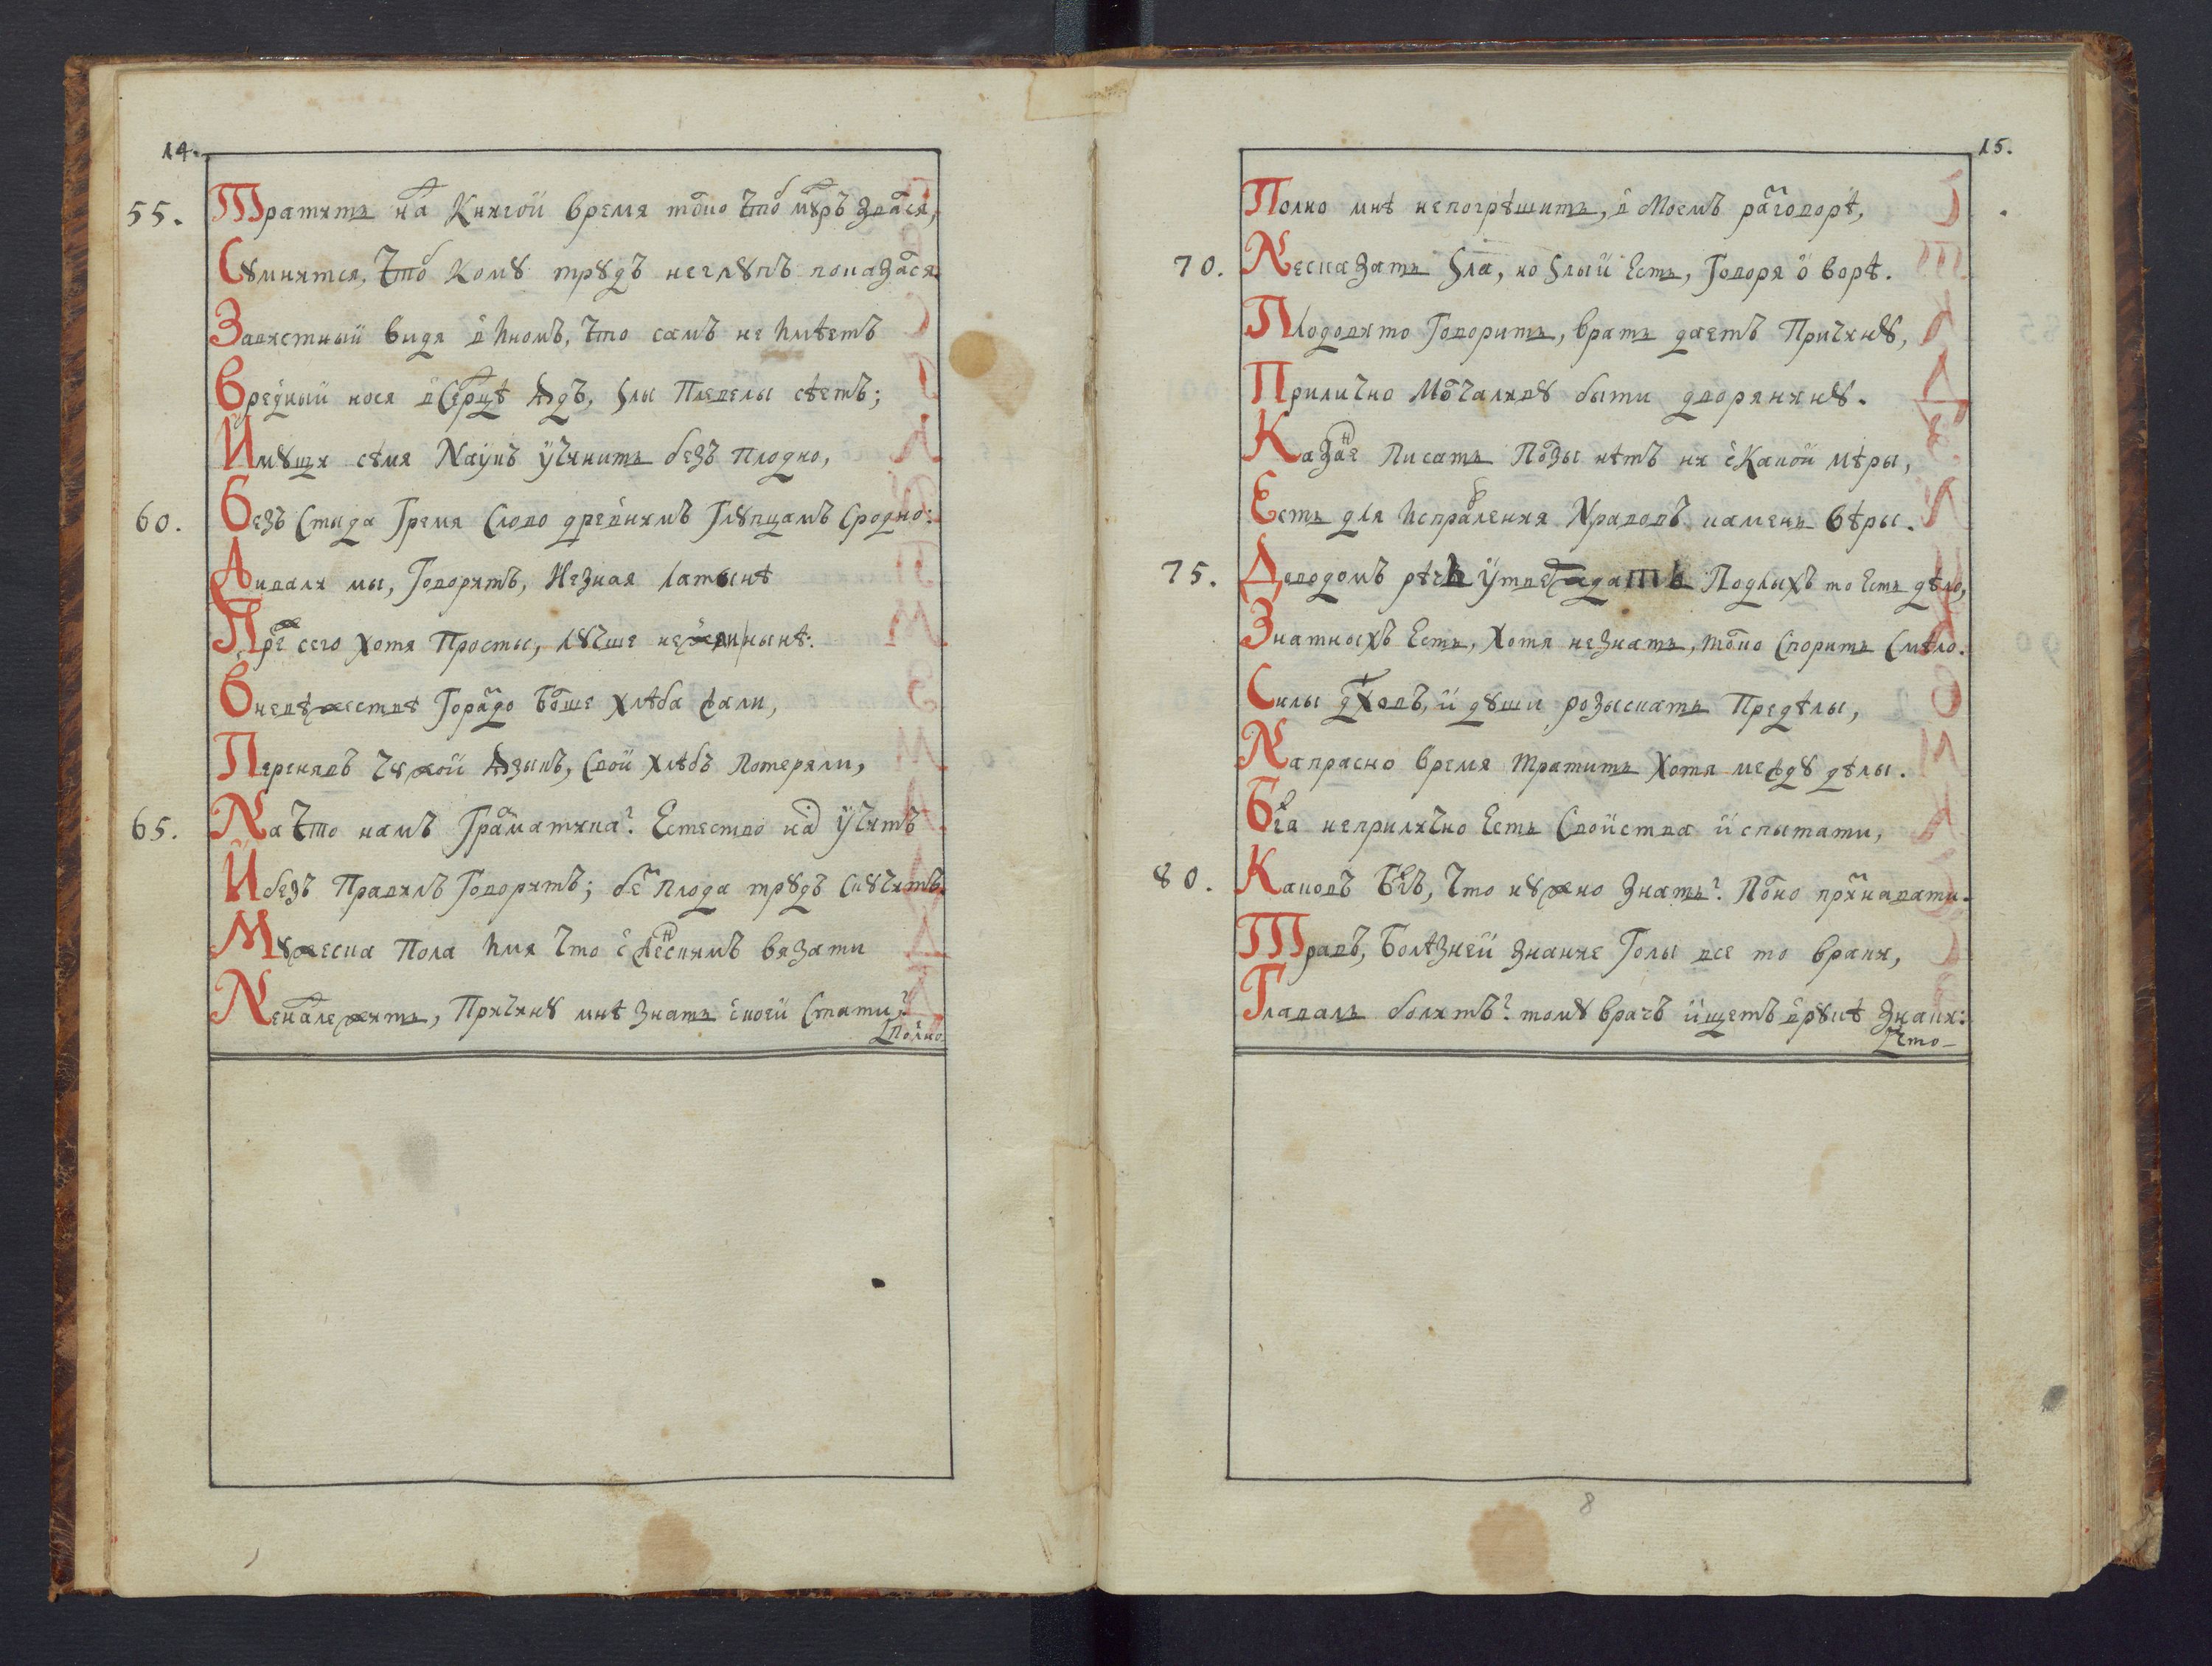 14.
55. Тратить на́д Книгой время то́лко что́б мꙋ́дръ зва́лся,
Сꙋмнятся, что́б комꙋ трꙋдъ неглꙋпъ показа́лся.
Завистный видя в иномъ, что самъ не имѣетъ
Вре́дный нося в се́рдцѣ ꙗдъ, ѕлы плевелы сѣетъ;
Имꙋщи сѣмя Наукъ учинить безъ плодно,
60. Безъ стыда гремя слово древнимъ глꙋпцамъ сродно:
Живали мы, говорятъ, Незная латынѣ
Прежде сего хотя просты, лꙋчше нежели нынѣ:
В невѣжествѣ гора́здо бо́лше хлѣба жали,
Перенявъ чꙋжой ꙗзыкъ, свой хлѣбъ потеряли,
65. На что намъ грамматика? Естество на́с учитъ
И безъ правилъ говорятъ; без плода трꙋдъ скꙋчитъ.
Мꙋжеска пола имя что с женскимъ вязати
Ненадлежитъ, причинꙋ мнѣ знать с коей стати?
Полно
15.
Полно мнѣ непогрѣшить, в моемъ разговорѣ,
70. Несказать ѕла, но ѕлый есть, говоря о ворѣ.
Плодовито говорить, врать даетъ причинꙋ,
Прилично молчаливꙋ быти дворянинꙋ.
Казанье писать ползы нѣтъ ни с какой мѣры,
Есть для исправления Нравовъ камень вѣры.
75. Доводомъ рѣчь утверждать подлыхъ то есть дѣло,
Знатныхъ есть, хотя незнать, то́лко спорить смѣло.
Силы дꙋховъ, и дꙋши розыскать предѣлы,
Напрасно время тратить хотя между дѣлы.
Бга неприлично есть свойства испытати,
80. Каковъ Бгъ, что нꙋжно знать? По́лно признавати.
Травъ, болѣзней знание голы все то враки,
Глаль болитъ? томꙋ врачъ ищетъ в рꙋкѣ знаки:
Что-
8